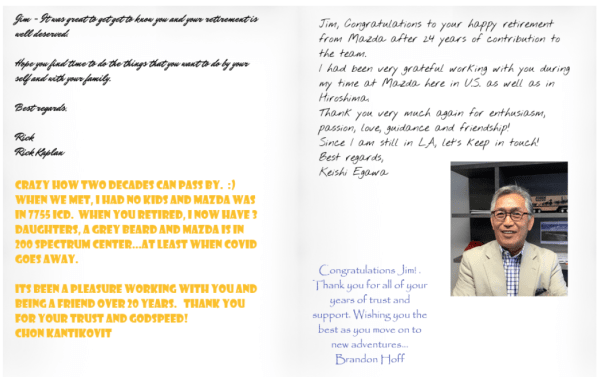 Jim - It was great to get get to know you and your retirement is
well deserved.
Hope you find time to do the things that you want to do by your
self and with your family.
Best regards,
Rick
Rick Kaplan
CRAZY HOW TWO DECADES CAN PASS BY. :)
WHEN WE MET, I HAD NO KIDS AND MAZDA WAS
IN 7755 ICD. WHEN YOU RETIRED, I NOW HAVE 3
DAUGHTERS, A GREY BEARD AND MAZDA IS IN
200 SPECTRUM CENTER...AT LEAST WHEN COVID
GOES AWAY.
ITS BEEN A PLEASURE WORKING WITH YOU AND
BEING A FRIEND OVER 20 YEARS. THANK YOU
FOR YOUR TRUST AND GODSPEED!
CHON KANTIKOVIT
Jim, Congratulations to your happy retirement
from Mazda after 24 years of contribution to
the team.
I had been very grateful working with you during
my time at Mazda here in U.S. as well as in
Hiroshima.
Thank you very much again for enthusiasm,
passion, love, guidance and friendship!
Since I am still in L.A, let's keep in touch!
Best regards,
Keishi Egawa
Congratulations Jim! .
Thank you for all of your
years of trust and
support. Wishing you the
best as you move on to
new adventures...
Brandon Hoff